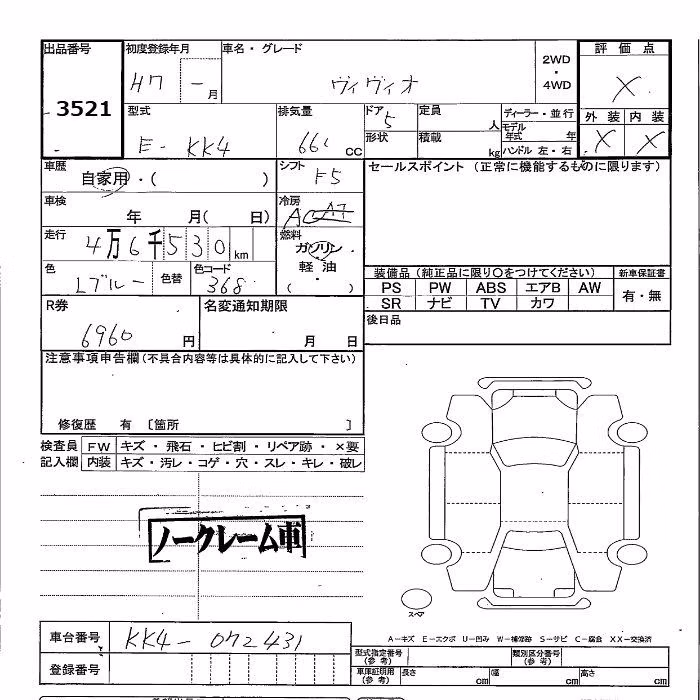 出品番号 初度登録年月 車名・グレード 2WD・4WD 評価点
3521 H7 - 月 ヴィヴィオ X
型式 排気量 ドア 定員 ディーラー・並行 外装 内装
E- KK4 66 cc 5 人 モデル年式 年 X X
形状 積載 kg ハンドル 左・右
車歴 シフト セールスポイント (正常に機能するものに限ります)
自家用・( ) F5
車検 冷房
年 月( 日) AC
走行 燃料
4万6千530km ガソリン
色 色替 色コード 軽油 装備品 (純正品に限り○をつけてください) 新車保証書
Lブルー 368 ( ) PS PW ABS エアB AW 有・無
SR ナビ TV カワ
R券 名変通知期限 後日品
6960円 月 日
注意事項申告欄(不具合内容等は具体的に記入して下さい)
修復歴 有 〔箇所 〕
検査員 FW キズ・飛石・ヒビ割・リペア跡・×要
記入欄 内装 キズ・汚レ・コゲ・穴・スレ・キレ・破レ
ノークレーム車
スペア
A-キズ E-エクボ U-凹み W-補修跡 S-サビ C-腐食 XX-交換済
車台番号 KK4-072431
型式指定番号(参考) 類別区分番号(参考)
登録番号 車庫証明用(参考) 長さ cm 幅 cm 高さ cm